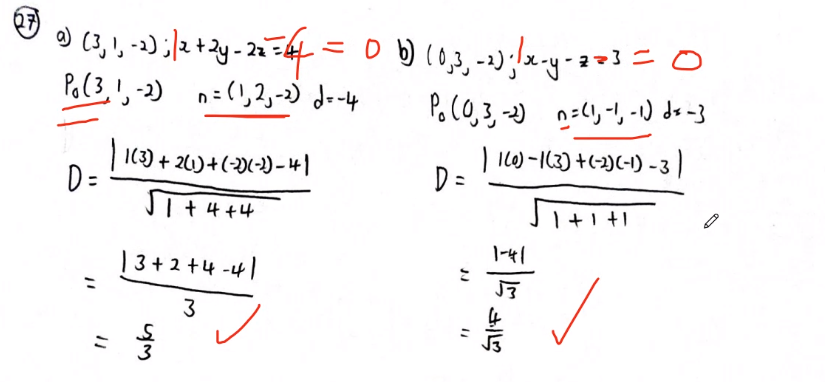 27
a) (3, 1, -2) ; x + 2y - 2z = 4 - 4 = 0
P₀(3, 1, -2) n = (1, 2, -2) d = -4
D = |1(3) + 2(1) + (-2)(-2) - 4| / √1 + 4 + 4
= |3 + 2 + 4 - 4| / 3
= 5/3 ✓
b) (0, 3, -2) ; x - y - z - 3 = 0
P₀(0, 3, -2) n = (1, -1, -1) d = -3
D = |1(0) - 1(3) + (-2)(-1) - 3| / √1 + 1 + 1
= |-4| / √3
= 4/√3 ✓